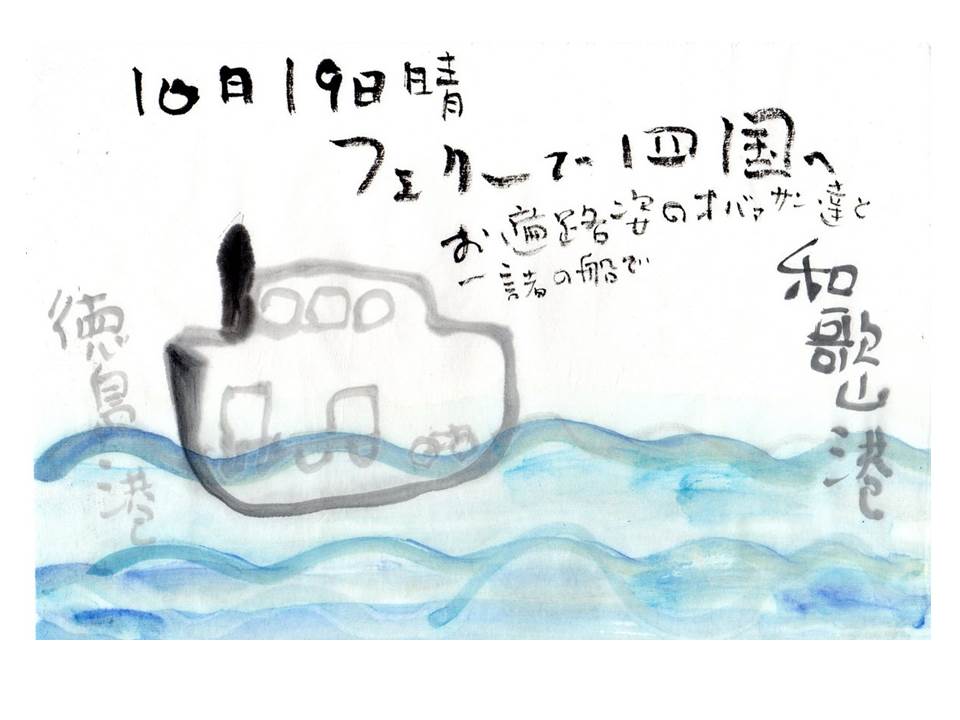 10月19日晴
フェリーで四国へ
お遍路姿のオバァサン達と
一諸の船で
和歌山港
徳島港